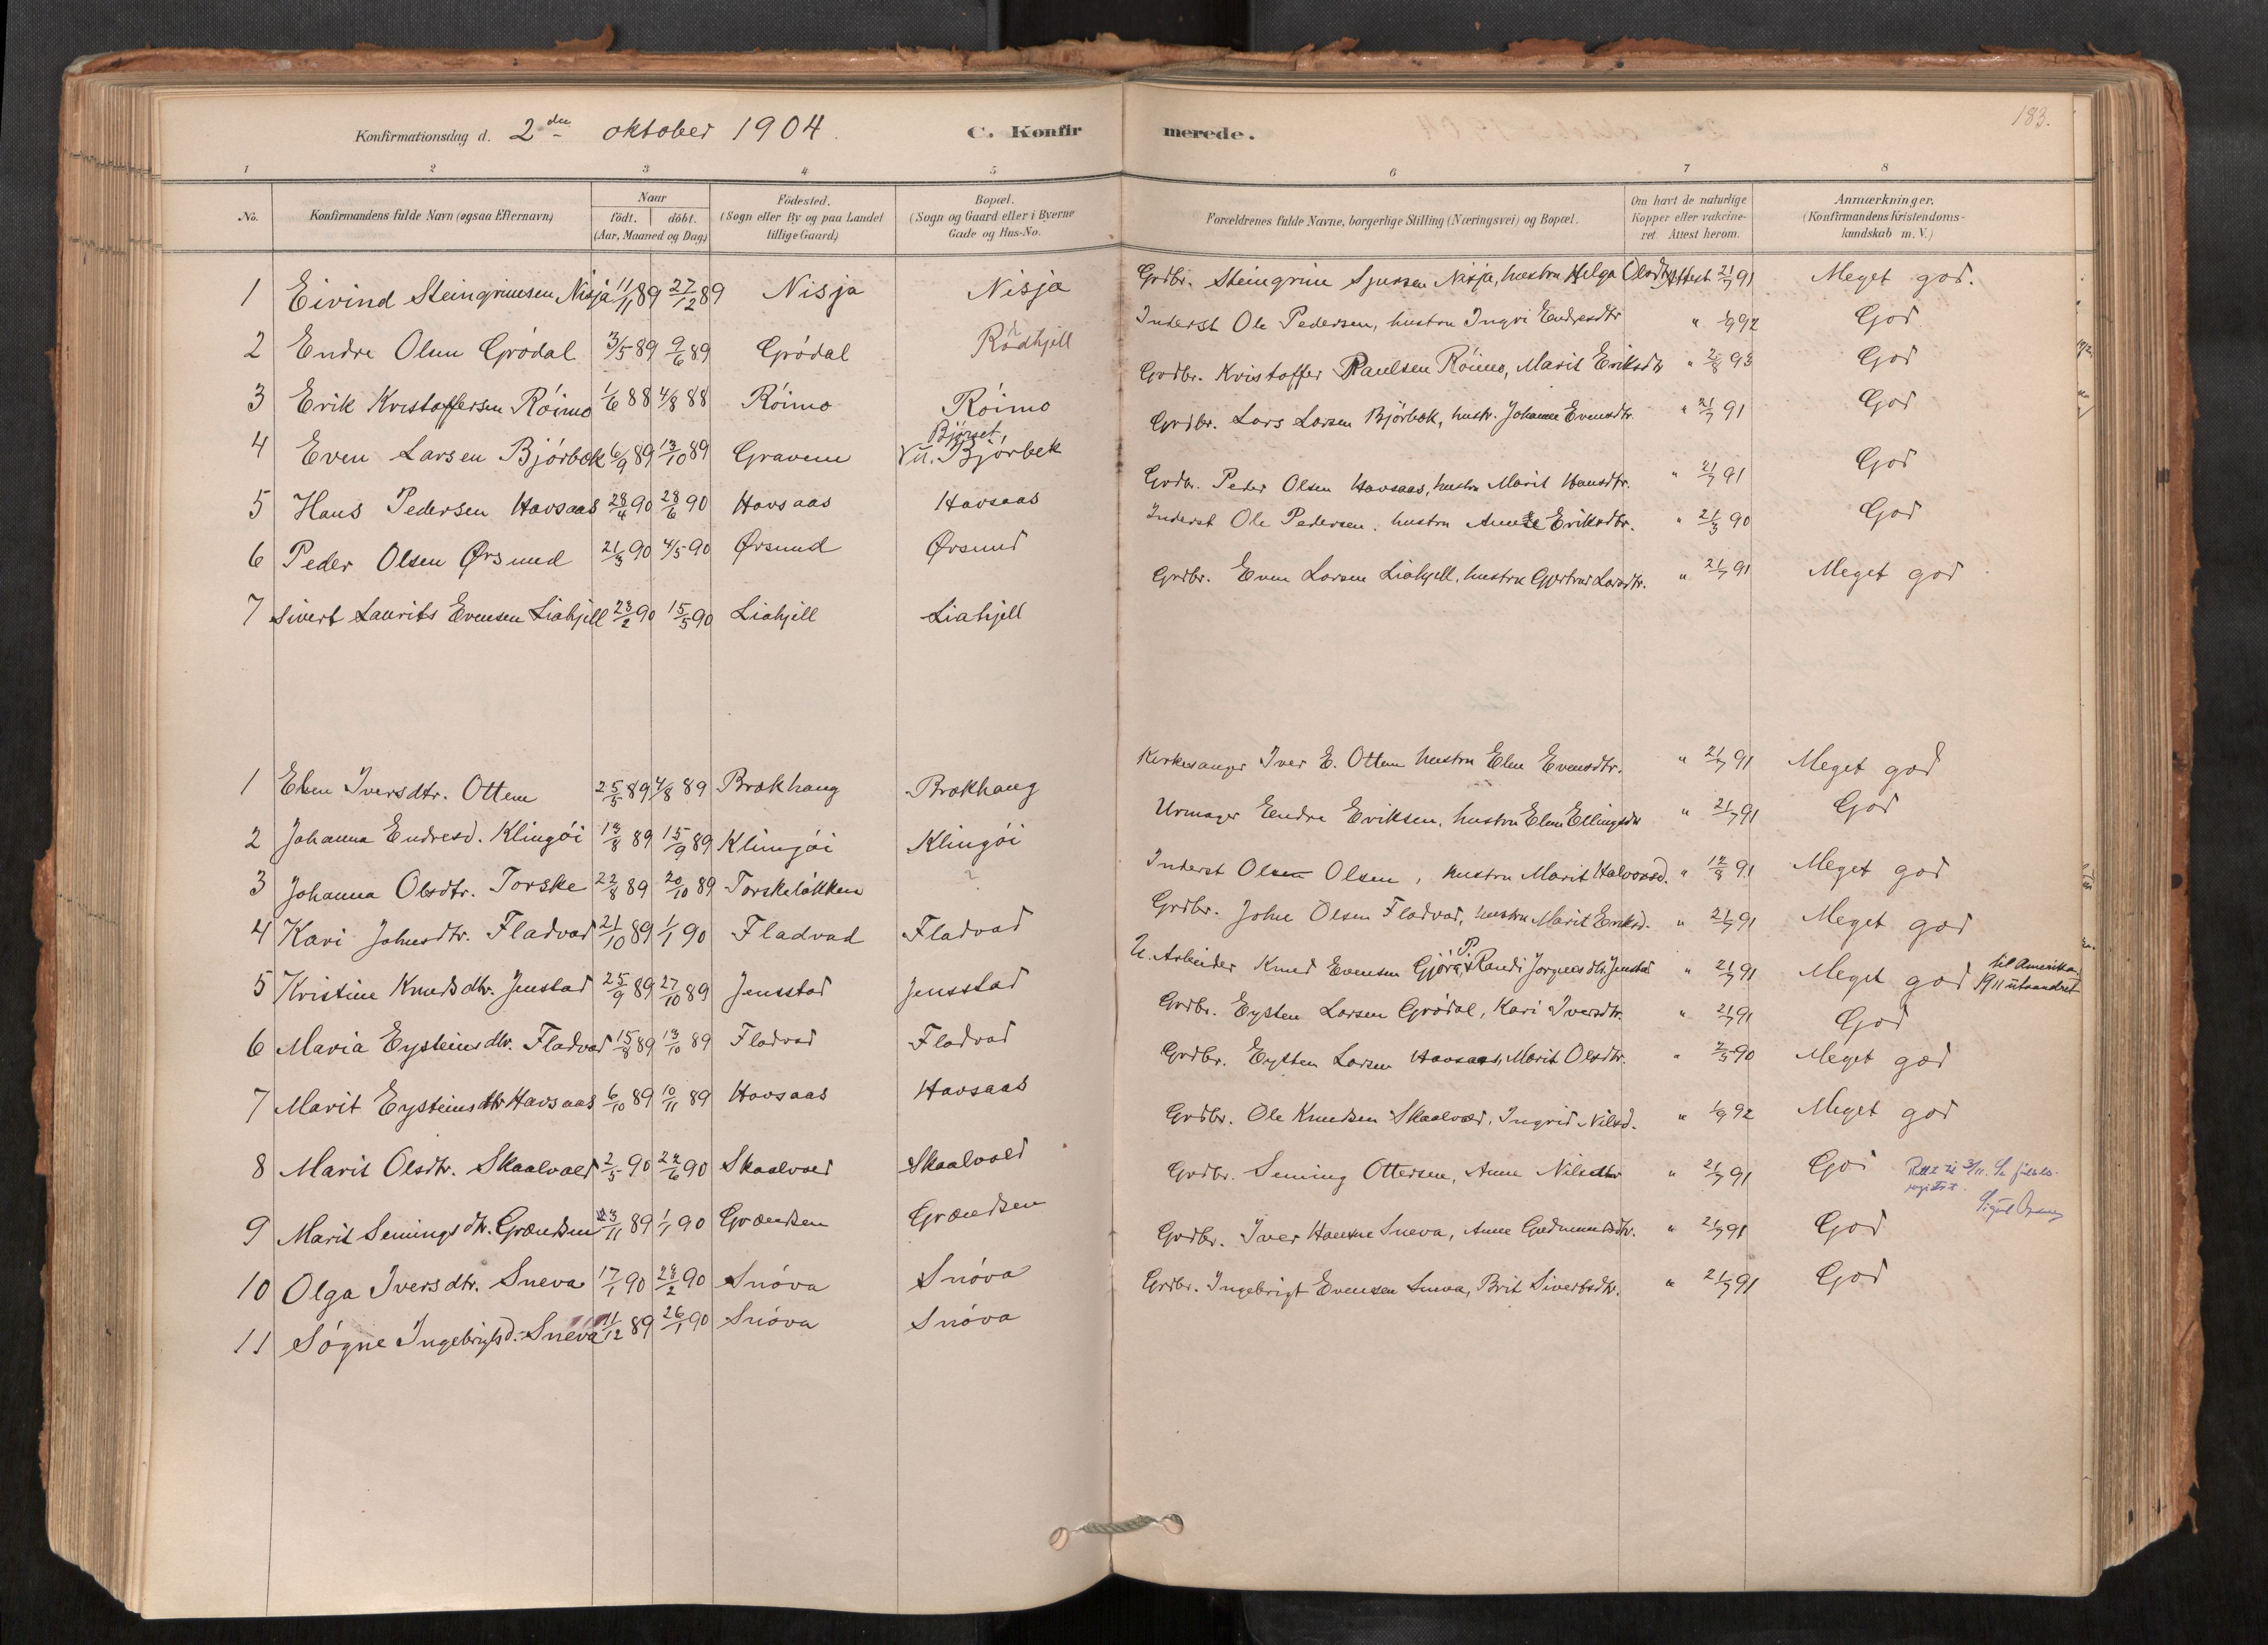 Konfirmationsdag d. 2den oktober 1904.
C. Konfirmerede.
183.
1 2 3 4 5 6 7 8
No.
Konfirmandens fulde Navn (ogsaa Efternavn)
Naar
födt. döbt.
(Aar, Maaned og Dag)
Födested.
(Sogn eller By og paa Landet
tillige Gaard)
Bopæl.
(Sogn og Gaard eller i Byerne
Gade og Hus-No.
Forældrenes fulde Navne, borgerlige Stilling (Næringsvei) og Bopæl.
Om havt de naturlige
Kopper eller vakcine-
ret. Attest herom.
Anmærkninger.
(Konfirmandens Kristendoms-
kundskab m. V.)
1 Eivind Steingrimsen Nisja 11/11 89 27/12 89 Nisja Nisja Grdbr. Steingrim Sjursen Nisja, hustru Helga Olsdtr. Attest 21/7 91 Meget god.
2 Endre Olsen Gródal 3/5 89 9/6 89 Gródal Ródhjell Inderst Ole Pedersen, hustru Ingri Endresdtr " 1/9 92 God
3 Erik Kristoffersen Róimo 1/6 88 4/8 88 Róimo Róimo Grdbr. Kristoffer Paulsen Róimo, Marit Eriksdtr " 2/8 93 God
4 Even Larsen Bjórbek 6/9 89 13/10 89 Gravem Bjørset, Bjórbek Grdbr. Lars Larsen Bjórbek, hustr. Johanne Evensdtr. " 21/7 91 God
5 Hans Pedersen Havsaas 28/4 90 28/6 90 Havsaas Havsaas Grdbr. Peder Olsen Havsaas, hustru Marit Hansdtr. " 21/7 91 God
6 Peder Olsen Ørsund 21/3 90 4/5 90 Ørsund Ørsund Inderst Ole Pedersen, hustru Anne Eriksdtr. " 21/3 90 God
7 Sivert Laurits Evensen Liahjell 23/2 90 15/5 90 Liahjell Liahjell Grdbr. Even Larsen Liahjell, hustru Gjertrud Larsdtr. " 21/7 91 Meget god
1 Elen Iversdtr. Ottem 25/5 89 4/8 89 Brækhaug Brækhaug Kirkesanger Iver E. Ottem hustru Elen Evensdtr. " 21/7 91 Meget god
2 Johanna Endresd. Klingói 13/8 89 15/9 89 Klingói Klingói Urmager Endre Eriksen, hustru Elen Ellingsdtr " 21/7 91 God
3 Johanna Olsdtr. Torske 22/8 89 20/10 89 Torskelókken ? Inderst Olsen Olsen, hustru Marit Halvorsd. " 12/8 91 Meget god
4 Kari Johnsdtr. Fladvad 21/10 89 1/1 90 Fladvad Fladvad Grdbr. John Olsen Fladvad, hustru Marit Eriksd. " 21/7 91 Meget god
5 Kristine Knudsdtr. Jenstad 25/9 89 27/10 89 Jensstad Jensstad U. Arbeider Knud Evensen Gjóra, P. Randi Jorgensdtr. Jenstad " 21/7 91 Meget god til Amerika 1911 utvandret
6 Maria Eysteinsdtr. Fladvad 15/8 89 13/10 89 Fladvad Fladvad Grdbr. Eysten Larsen Gródal, Kari Iversdtr. " 21/7 91 God
7 Marit Eysteinsdtr Havsaas 6/10 89 10/11 89 Havsaas Havsaas Grdbr. Eysten Larsen Havsaas, Marit Olsdtr. " 2/5 90 Meget god
8 Marit Olsdtr. Skaalvold 2/5 90 22/6 90 Skaalvold Skaalvold Grdbr. Ole Knudsen Skaalvold, Ingrid Nilsd. " 1/9 92 Meget god
9 Marit Semingsdtr. Grændsen 23/11 89 1/1 90 Grændsen Grændsen Grdbr. Seming Ottersen, Anne Nilsdtr " 21/7 91 God Rett til 3/11.
10 Olga Iversdtr. Sneva 17/1 90 23/2 90 Snóva Snóva Grdbr. Iver Hansen Sneva, Anne Gudmundsdtr. " 21/7 91 God
11 Sógne Ingebrigtsd. Sneva 11/12 89 26/1 90 Snóva Snóva Grdbr. Ingebrigt Evensen Sneva, Brit Sivertsdtr. " 21/7 91 God